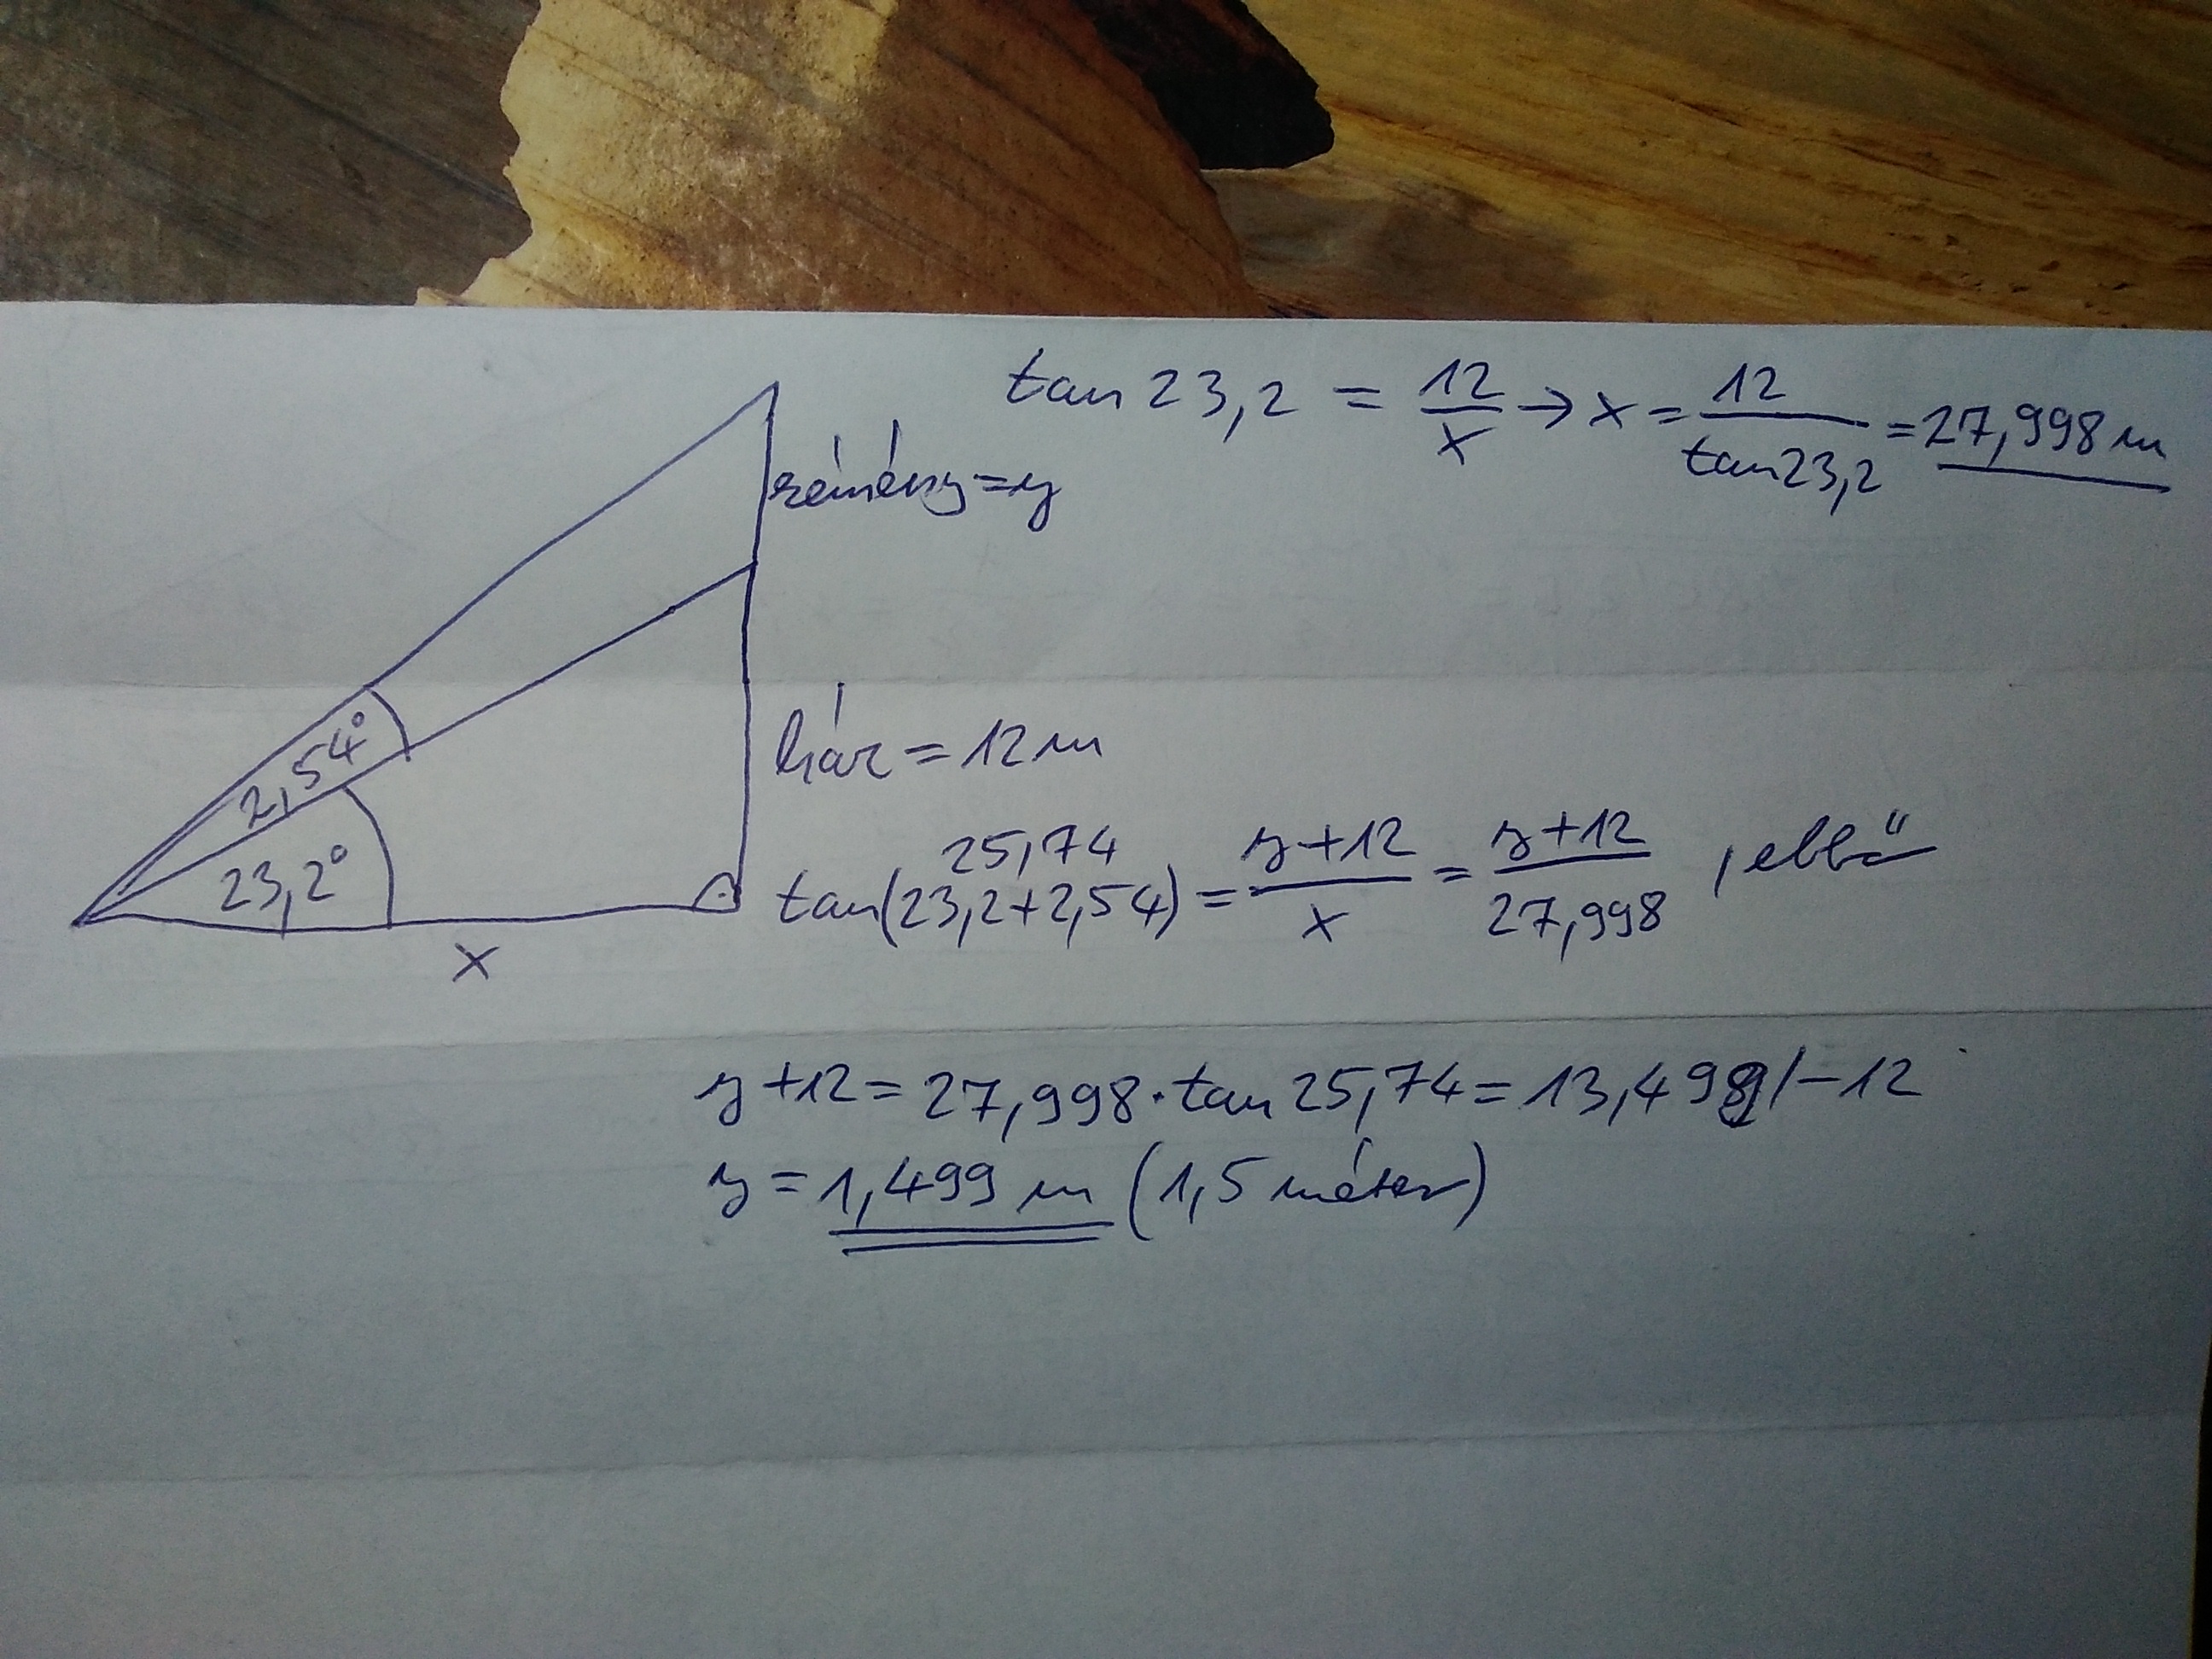 tan 23,2 = 12/x → x = 12/tan 23,2 = 27,998 m
kémény = y
2,54°
ház = 12 m
23,2°
25,74
tan(23,2+2,54) = y+12/x = y+12/27,998 , ebből
x
y+12 = 27,998 · tan 25,74 = 13,499 /-12
y = 1,499 m (1,5 méter)